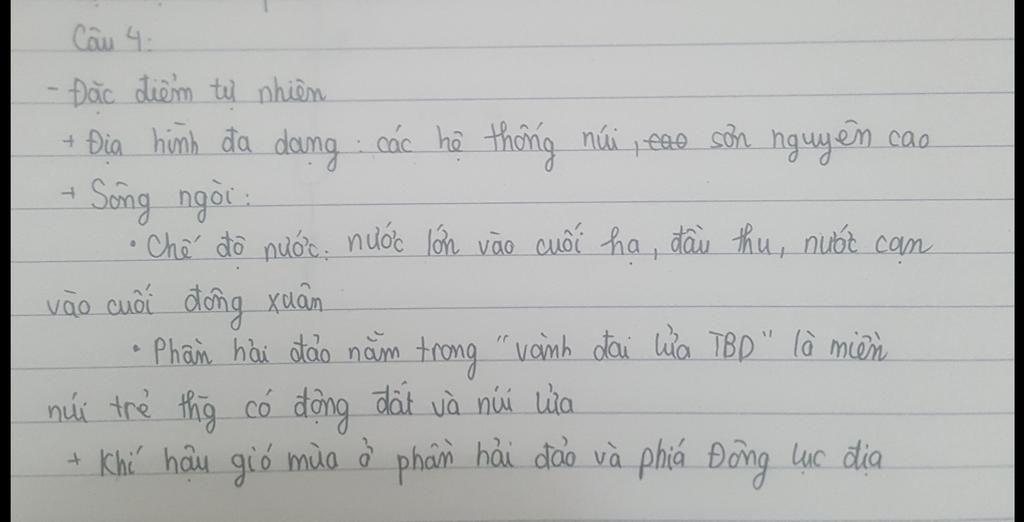 Câu 4:
- Đặc điểm tự nhiên
+ Địa hình đa dạng: các hệ thống núi, cao sơn nguyên cao
+ Sông ngòi:
• Chế độ nước: nước lớn vào cuối hạ, đầu thu, nước cạn
vào cuối đông xuân
• Phần hải đảo nằm trong "vành đai lửa TBD" là miền
núi trẻ thg có động đất và núi lửa
+ Khí hậu gió mùa ở phần hải đảo và phía Đông lục địa